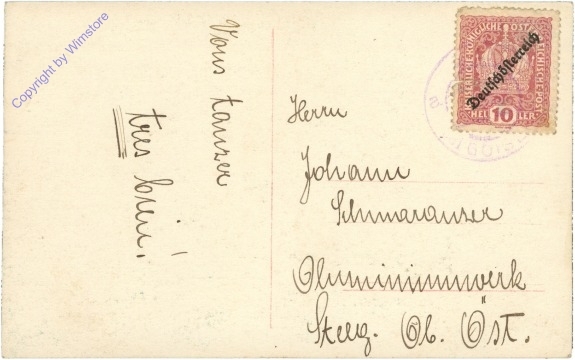 Copyright by Wimstore
Vous tanzer
tres bien!
KAISERLICHE KÖNIGLICHE ÖSTERREICHISCHE POST
Deutschösterreich
HELLER
10
Herrn
Johann
Schmaranzer
Aluminiumwerk
Steeg. Ob. Öst.